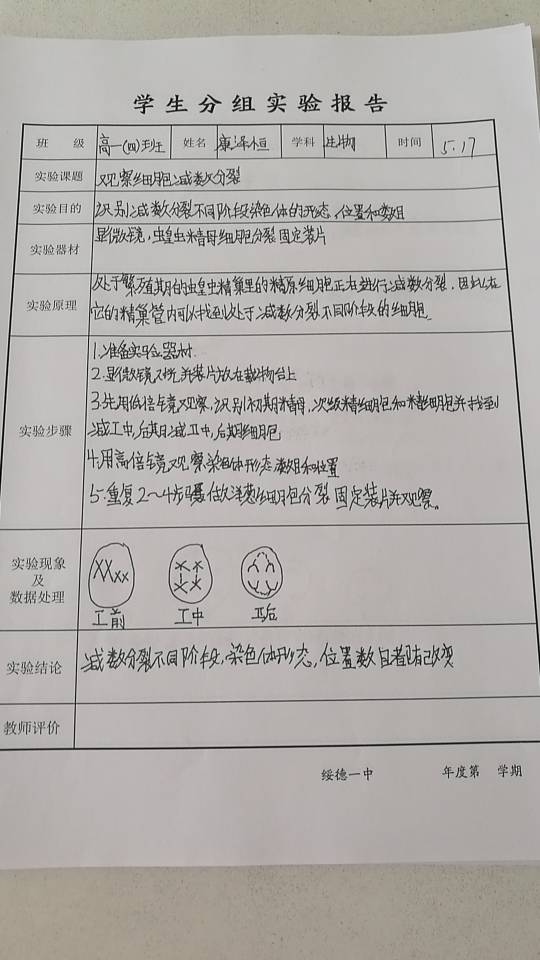 学生分组实验报告
班 级 高一(四)班 姓名 康泽恒 学科 生物 时间 5.17
实验课题 观察细胞减数分裂
实验目的 识别减数分裂不同阶段染色体的形态、位置和数目
实验器材 显微镜，蝗虫精母细胞分裂固定装片
实验原理 处于繁殖期的蝗虫精巢里的精原细胞正在进行减数分裂，因此在
它的精巢管内可以找到处于减数分裂不同阶段的细胞。
实验步骤
1.准备实验器材
2.显微镜对光并装片放在载物台上
3.先用低倍镜观察，识别初期精母，次级精细胞和精细胞并找到
减I中，后期减II中，后期细胞
4.用高倍镜观察染色体形态数目和位置
5.重复2～4步骤做洋葱细胞分裂固定装片并观察。
实验现象
及
数据处理
I前 I中 II后
实验结论 减数分裂不同阶段，染色体形态，位置数目都有改变
教师评价
绥德一中 年度第 学期